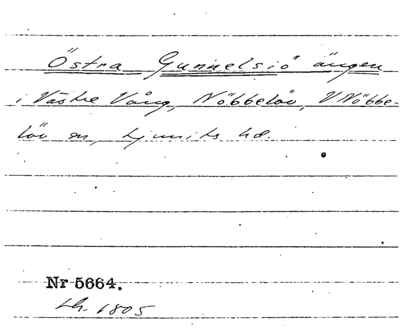 Östra Gunnelsiö ängen
i Västre Vång, Nöbbelöv, V Nöbbe-
löv sn, Ljunits hd.
Nr 5664.
Lh. 1805